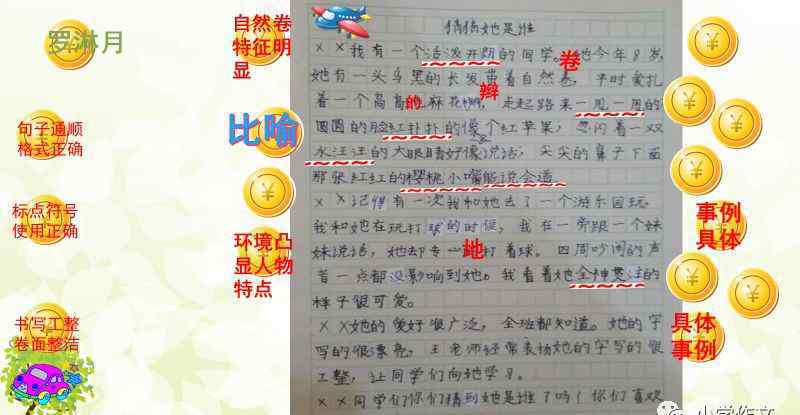 罗淋月
句子通顺
格式正确
标点符号
使用正确
书写工整
卷面整洁
自然卷
特征明
显
比喻
环境凸
显人物
特点
猜猜她是谁
××我有一个活泼开朗的同学。她今年8岁,
卷
她有一头乌黑的长发带着自然卷,平时爱扎
的
辫
着一个高高的麻花,走起路来一甩一甩的
圆圆的脸红扑扑的像个红苹果,忽闪着一双
水汪汪的大眼睛好像说话,尖尖的鼻子下面
那张红红的樱桃小嘴能说会道
××记得有一次我和她去了一个游乐园玩,
我和她在玩打球的时候,我在一旁跟一个妹
妹说话,她却专心打着球。四周吵闹的声
地
音一点都没影响到她。我看着她全神贯注的
样子很可爱。
××她的爱好很广泛,全班都知道。她的字
写的很漂亮,王老师经常表扬她的字写的很
工整,让同学们向她学习。
××同学们你们猜到她是谁了吗!你们喜欢
事例
具体
具体
事例
小学作文